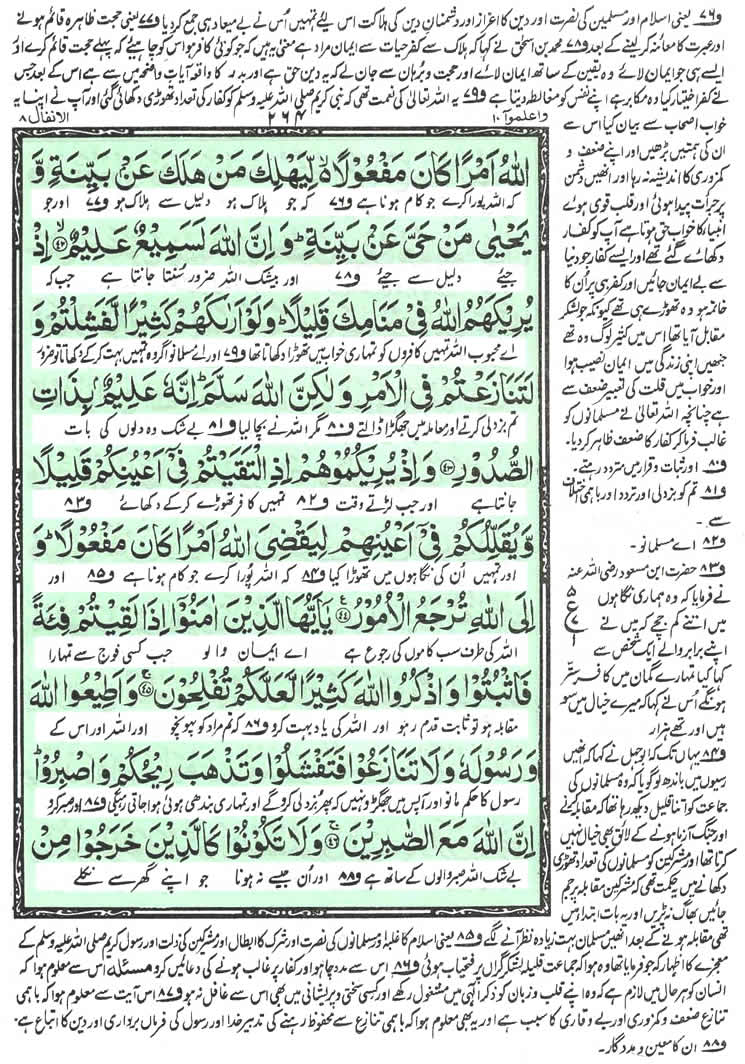 و۷۶ یعنی اسلام اور مسلمین کی نصرت اور دین کا اعزاز اور دشمنانِ دین کی ہلاکت اس لیے تمہیں اُس نے بے میعادی جمع کر دیا و۷۷ یعنی حجت ظاہرہ قائم ہونے
اور عبرت کا معائنہ کر لینے کے بعد و۷۸ محمد بن اسحٰق نے کہا کہ ہلاک سے کفر حیات سے ایمان مراد ہے معنی یہ ہیں کہ جو کوئی کافر ہو اس کو چاہیے کہ پہلے حجت قائم کرے اور
ایسے ہی جو ایمان لائے وہ یقین کے ساتھ ایمان لائے اور حجت و برہان سے جان لے کہ یہ دین حق ہے اور بدر کا واقعہ آیات واضحہ میں سے ہے اس کے بعد جس
نے کفر اختیار کیا وہ مکابر ہے اپنے نفس کو مغالطہ دیتا ہے و۷۹ یہ اللہ تعالیٰ کی نعمت تھی کہ نبی کریم صلی اللہ علیہ وسلم کو کفار کی تعداد تھوڑی دکھائی گئی اور آپ نے اپنا یہ
واعلموا ۱۰ ۲۶۴ الانفال ۸
اللّٰهُ اَمْرًا كَانَ مَفْعُوْلًا ۙ لِّيَهْلِكَ مَنْ هَلَكَ عَنْۢ بَيِّنَةٍ وَّ
کہ اللہ پورا کرے جو کام ہونا ہے و۷۶ کہ جو ہلاک ہو دلیل سے ہلاک ہو و۷۷ اور جو
يَحْيٰى مَنْ حَيَّ عَنْۢ بَيِّنَةٍ ؕ وَاِنَّ اللّٰهَ لَسَمِيْعٌ عَلِيْمٌ ۙ﴿۴۲﴾ اِذْ
جئے دلیل سے جئے و۷۸ اور بیشک اللہ ضرور سُنتا جانتا ہے جب کہ
يُرِيْكَهُمُ اللّٰهُ فِيْ مَنَامِكَ قَلِيْلًا ؕ وَلَوْ اَرٰىكَهُمْ كَثِيْرًا لَّفَشِلْتُمْ وَ
اے محبوب اللہ تمہیں کافروں کو تمہاری خواب میں تھوڑا دکھاتا تھا و۷۹ اور اے مسلمانو اگر وہ تمہیں بہت کر کے دکھاتا تو ضرور
لَتَنَازَعْتُمْ فِي الْاَمْرِ وَلٰكِنَّ اللّٰهَ سَلَّمَ ؕ اِنَّهٗ عَلِيْمٌۢ بِذَاتِ
تم بزدلی کرتے اور معاملہ میں جھگڑا ڈالتے و۸۰ مگر اللہ نے بچا لیا و۸۱ بے شک وہ دلوں کی بات
الصُّدُوْرِ ﴿۴۳﴾ وَاِذْ يُرِيْكُمُوْهُمْ اِذِ الْتَقَيْتُمْ فِيْٓ اَعْيُنِكُمْ قَلِيْلًا
جانتا ہے اور جب لڑتے وقت و۸۲ تمہیں کافر تھوڑے کر کے دکھائے و۸۳
وَّيُقَلِّلُكُمْ فِيْٓ اَعْيُنِهِمْ لِيَقْضِيَ اللّٰهُ اَمْرًا كَانَ مَفْعُوْلًا ؕ وَ
اور تمہیں اُن کی نگاہوں میں تھوڑا کیا و۸۴ کہ اللہ پورا کرے جو کام ہونا ہے و۸۵ اور
اِلَى اللّٰهِ تُرْجَعُ الْاُمُوْرُ ﴿۴۴﴾ يٰٓاَيُّهَا الَّذِيْنَ اٰمَنُوْٓا اِذَا لَقِيْتُمْ فِئَةً
اللہ کی طرف سب کاموں کی رجوع ہے اے ایمان والو جب کسی فوج سے تمہارا
فَاثْبُتُوْا وَاذْكُرُوا اللّٰهَ كَثِيْرًا لَّعَلَّكُمْ تُفْلِحُوْنَ ﴿۴۵﴾ وَاَطِيْعُوا اللّٰهَ
مقابلہ ہو تو ثابت قدم رہو اور اللہ کی یاد بہت کرو و۸۶ کہ تم مراد کو پہونچو اور اللہ اور اس کے
وَرَسُوْلَهٗ وَلَا تَنَازَعُوْا فَتَفْشَلُوْا وَتَذْهَبَ رِيْحُكُمْ وَاصْبِرُوْا ؕ
رسول کا حکم مانو اور آپس میں جھگڑو نہیں کہ پھر بزدلی کرو گے اور تمہاری بندھی ہوئی ہوا جاتی رہیگی و۸۷ اور صبر کرو
اِنَّ اللّٰهَ مَعَ الصّٰبِرِيْنَ ﴿۴۶﴾ وَلَا تَكُوْنُوْا كَالَّذِيْنَ خَرَجُوْا مِنْ
بے شک اللہ صبر والوں کے ساتھ ہے و۸۸ اور اُن جیسے نہ ہونا جو اپنے گھر سے نکلے
خواب اصحاب سے بیان کیا اس سے
ان کی ہمتیں بڑھیں اور اپنے ضعف و
کمزوری کا اندیشہ نہ رہا اور انھیں دشمن
پر جرأت پیدا ہوئی اور قلب قوی ہوئے
انبیا کا خواب حق ہوتا ہے آپ کو کفار
دکھائے گئے تھے اور ایسے کفار جو دنیا
سے بے ایمان جائیں اور کفر ہی پر اُن کا
خاتمہ ہو وہ تھوڑے ہی تھے کیونکہ جو لشکر
مقابل آیا تھا اس میں کثیر لوگ وہ تھے
جنھیں اپنی زندگی میں ایمان نصیب ہوا
اور خواب میں قلت کی تعبیر ضعف سے
ہے چنانچہ اللہ تعالیٰ نے مسلمانوں کو
غالب فرما کر کفار کا ضعف ظاہر کر دیا۔
و۸۰ اور ثبات و قرار میں متردد رہتے۔
و۸۱ تم کو بزدلی اور تردد اور باہمی اختلاف
سے۔
و۸۲ اے مسلمانو۔
و۸۳ حضرت ابن مسعود رضی اللہ عنہ
نے فرمایا کہ وہ ہماری نگاہوں
میں اتنے کم جچے کہ میں نے
اپنے برابر والے ایک شخص سے
کہا کیا تمہارے گمان میں کافر ستر
ہونگے اُس نے کہا کہ میرے خیال میں سو
ہیں اور تھے ہزار
۵
ع
۷
۱
و۸۴ یہاں تک کہ ابوجہل نے کہا کہ انھیں
رسیوں میں باندھ لو گویا کہ وہ مسلمانوں کی
جماعت کو اتنا قلیل دیکھ رہا تھا کہ مقابلہ کرنے
اور جنگ آزما ہونے کے لائق بھی خیال نہیں
کرتا تھا اور مشرکین کو مسلمانوں کی تعداد تھوڑی
دکھانے میں یہ حکمت تھی کہ مشرکین مقابلہ پر جم
جائیں بھاگ نہ پڑیں اور یہ بات ابتدا میں
تھی مقابلہ ہونے کے بعد انھیں مسلمان بہت زیادہ نظر آنے لگے و۸۵ یعنی اسلام کا غلبہ اور مسلمانوں کی نصرت اور شرک کا ابطال اور مشرکین کی ذلت اور رسول کریم صلی اللہ علیہ وسلم کے
معجزے کا اظہار کہ جو فرمایا تھا وہ ہوا کہ جماعت قلیلہ لشکر گراں پر فتحیاب ہوئی و۸۶ اس سے مدد چاہو اور کفار پر غالب ہونے کی دعائیں کرو مسئلہ اس سے معلوم ہوا کہ
انسان کو ہر حال میں لازم ہے کہ وہ اپنے قلب و زبان کو ذکر الٰہی میں مشغول رکھے اور کسی سختی و پریشانی میں بھی اس سے غافل نہ ہو و۸۷ اس آیت سے معلوم ہوا کہ باہمی
تنازع ضعف و کمزوری اور بے وقاری کا سبب ہے اور یہ بھی معلوم ہوا کہ باہمی تنازع سے محفوظ رہنے کی تدبیر خدا اور رسول کی فرماں برداری اور دین کا اتباع ہے۔
و۸۸ ان کا معین و مددگار۔